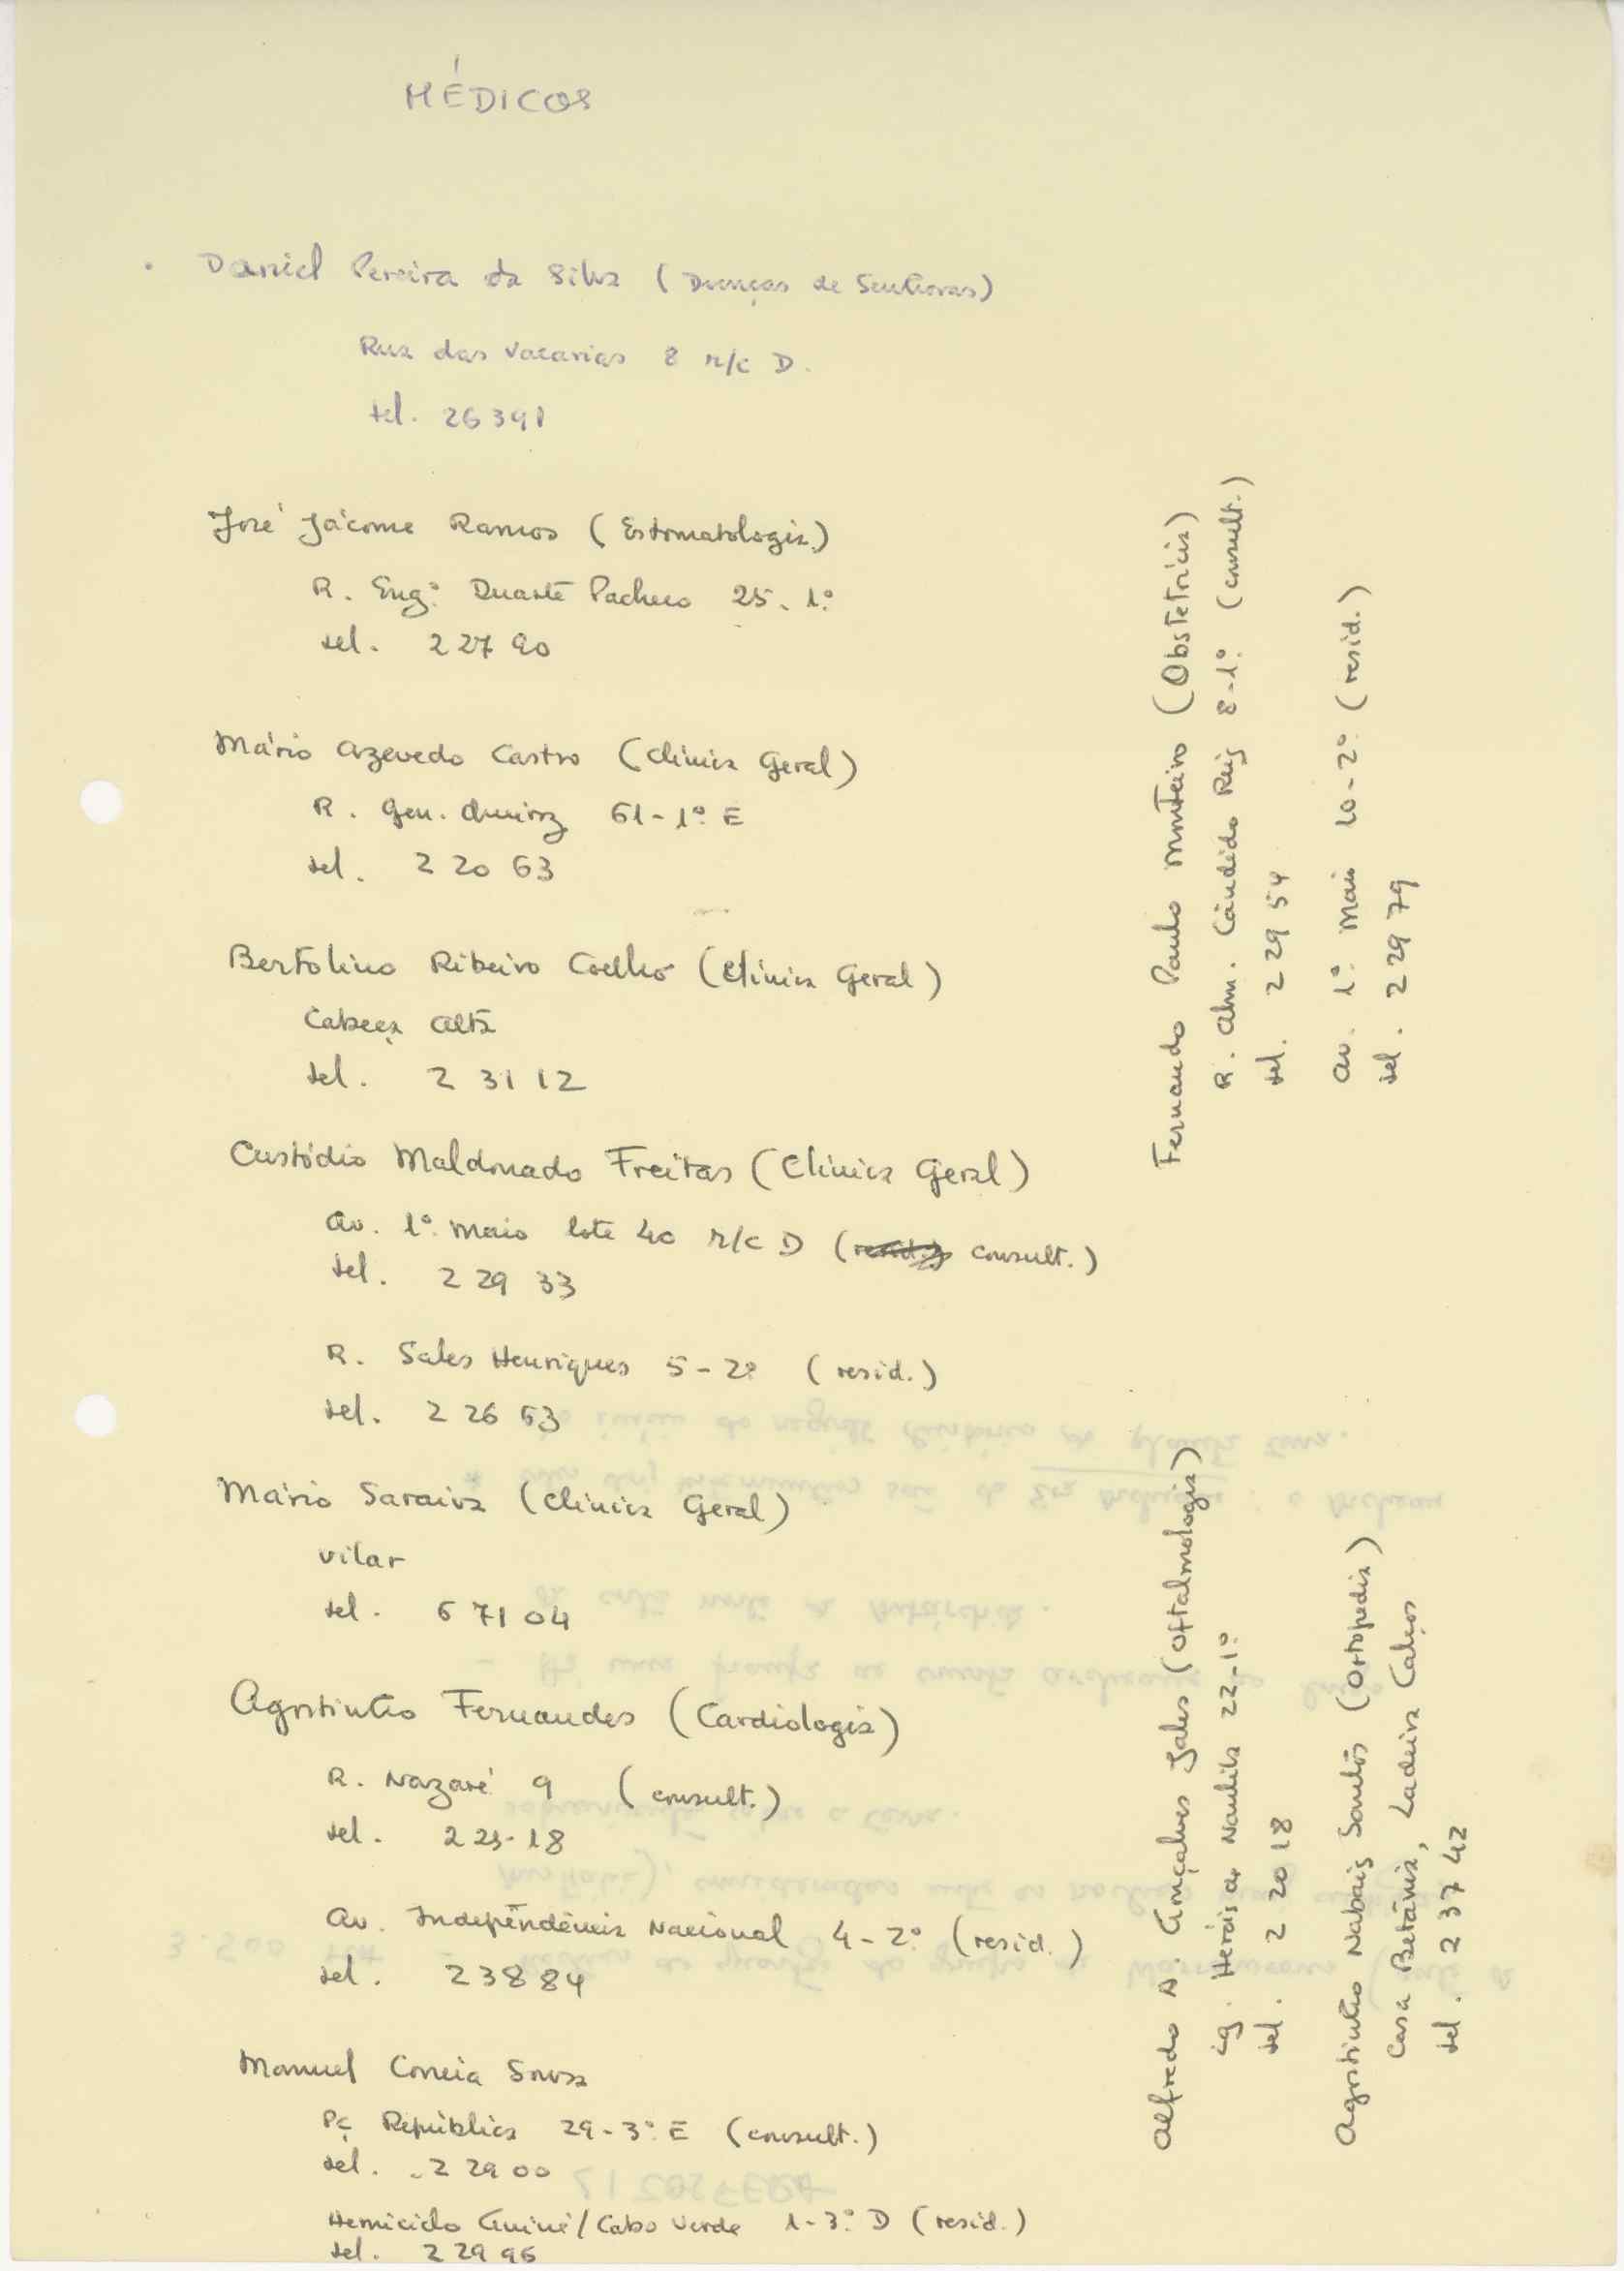 MÉDICOS
. Daniel Pereira da Silva (Doenças de Senhoras)
Rua das Vacarias 8 r/c D.
tel. 26391
José Jácome Ramos (Estomatologia)
R. Engº. Duarte Pacheco 25. 1º.
tel. 2 27 90
Mário Azevedo Castro (Clínica Geral)
R. Gen. Queiroz 61-1º. E
tel. 2 20 63
Bertolino Ribeiro Coelho (Clínica Geral)
Cabeça Alta
tel. 2 31 12
Custódio Maldonado Freitas (Clínica Geral)
Av. 1º. Maio lote 40 r/c D ( consult.)
tel. 2 29 33
R. Sales Henriques 5-2º (resid.)
tel. 2 26 53
Mário Saraiva (Clínica Geral)
Vilar
tel. 6 71 04
Agostinho Fernandes (Cardiologia)
R. Nazaré 9 (consult.)
tel.
Av. Independência Nacional 4-2º (resid.)
tel. 23884
Manuel Correia Sousa
Pç República 29-3º. E (consult.)
tel. 2 29 00
Hemiciclo Guiné/Cabo Verde 1-3º. D (resid.)
tel. 2 29 96
Fernando Paulo Monteiro (Obstetrícia)
R. Alm. Cândido Reis 8-1º. (consult.)
tel. 2 29 54
Av. 1º. Maio 10-2º. (resid.)
tel. 2 29 79
Alfredo A. Gonçalves Sales (Oftalmologia)
Lg. Heróis de Naulila 22-1º
tel. 2 20 18
Agostinho Nabais Santos (Ortopedia)
Casa Betânia, Ladeira Caços
tel. 2 37 42